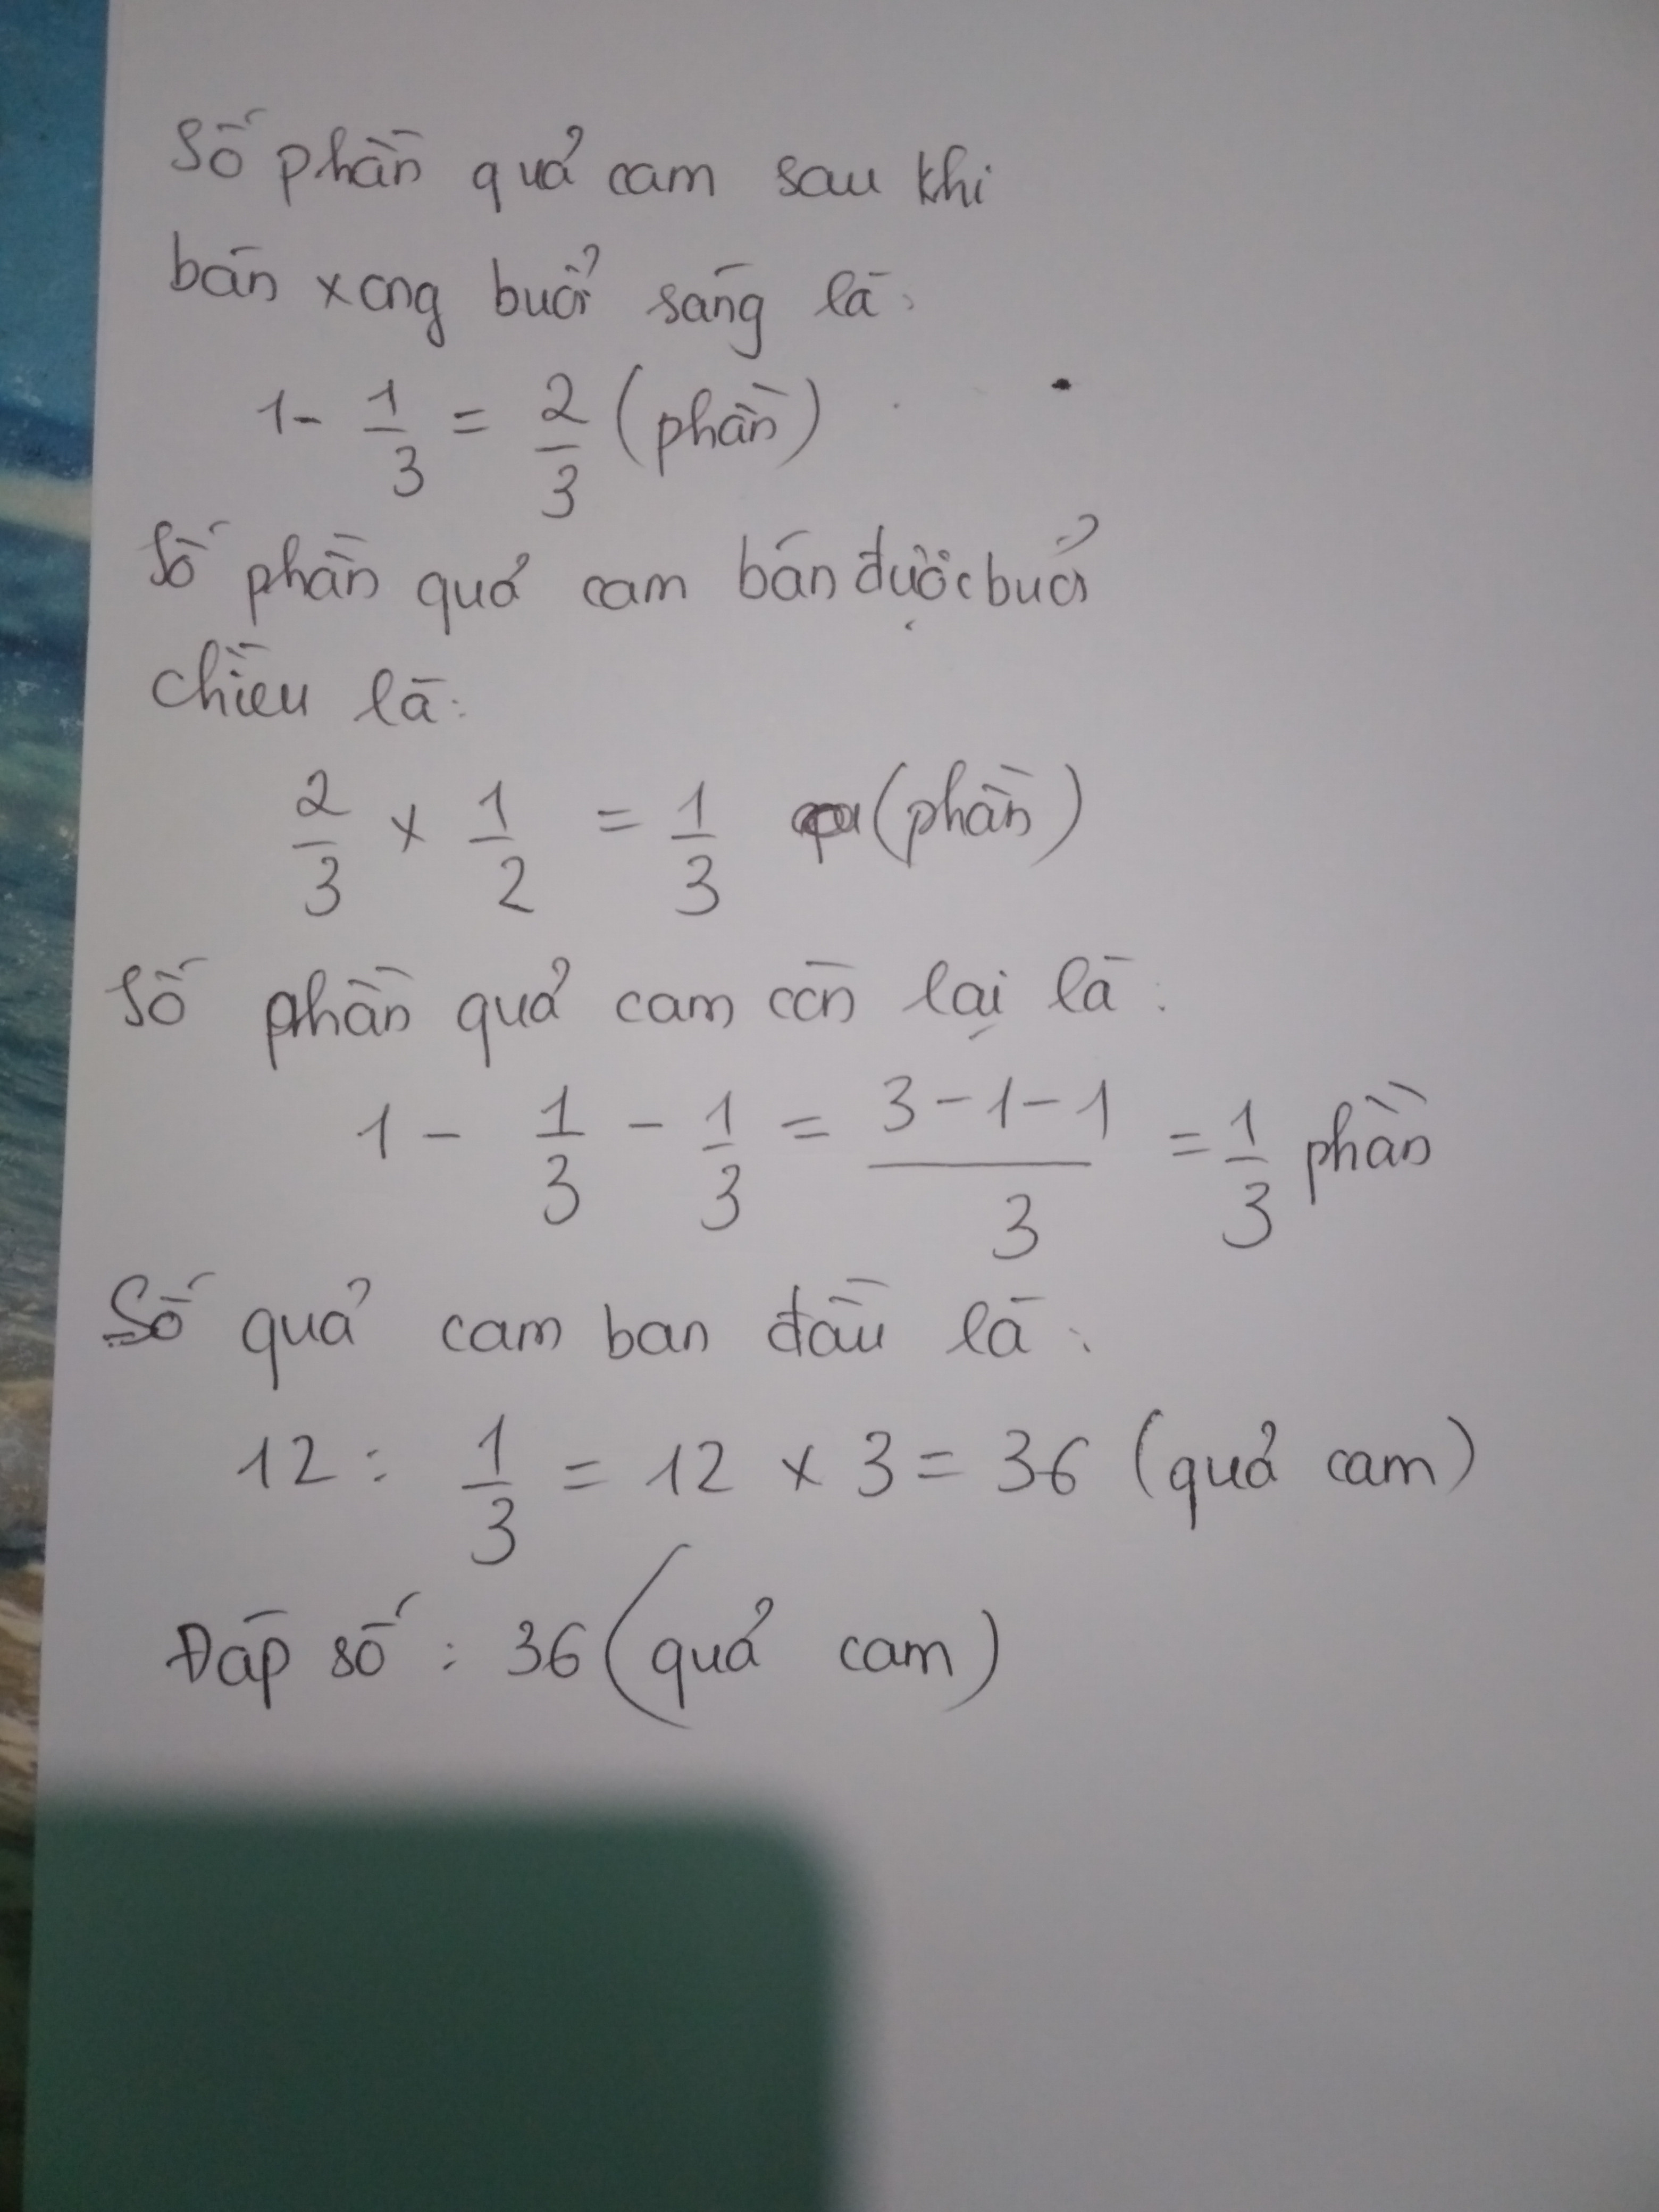 Số phần quả cam sau khi
bán xong buổi sáng là:
1 - 1/3 = 2/3 (phần)
Số phần quả cam bán được buổi
chiều là:
2/3 x 1/2 = 1/3 (phần)
Số phần quả cam còn lại là:
1 - 1/3 - 1/3 = (3-1-1)/3 = 1/3 phần
Số quả cam ban đầu là:
12 : 1/3 = 12 x 3 = 36 (quả cam)
Đáp số : 36 (quả cam)